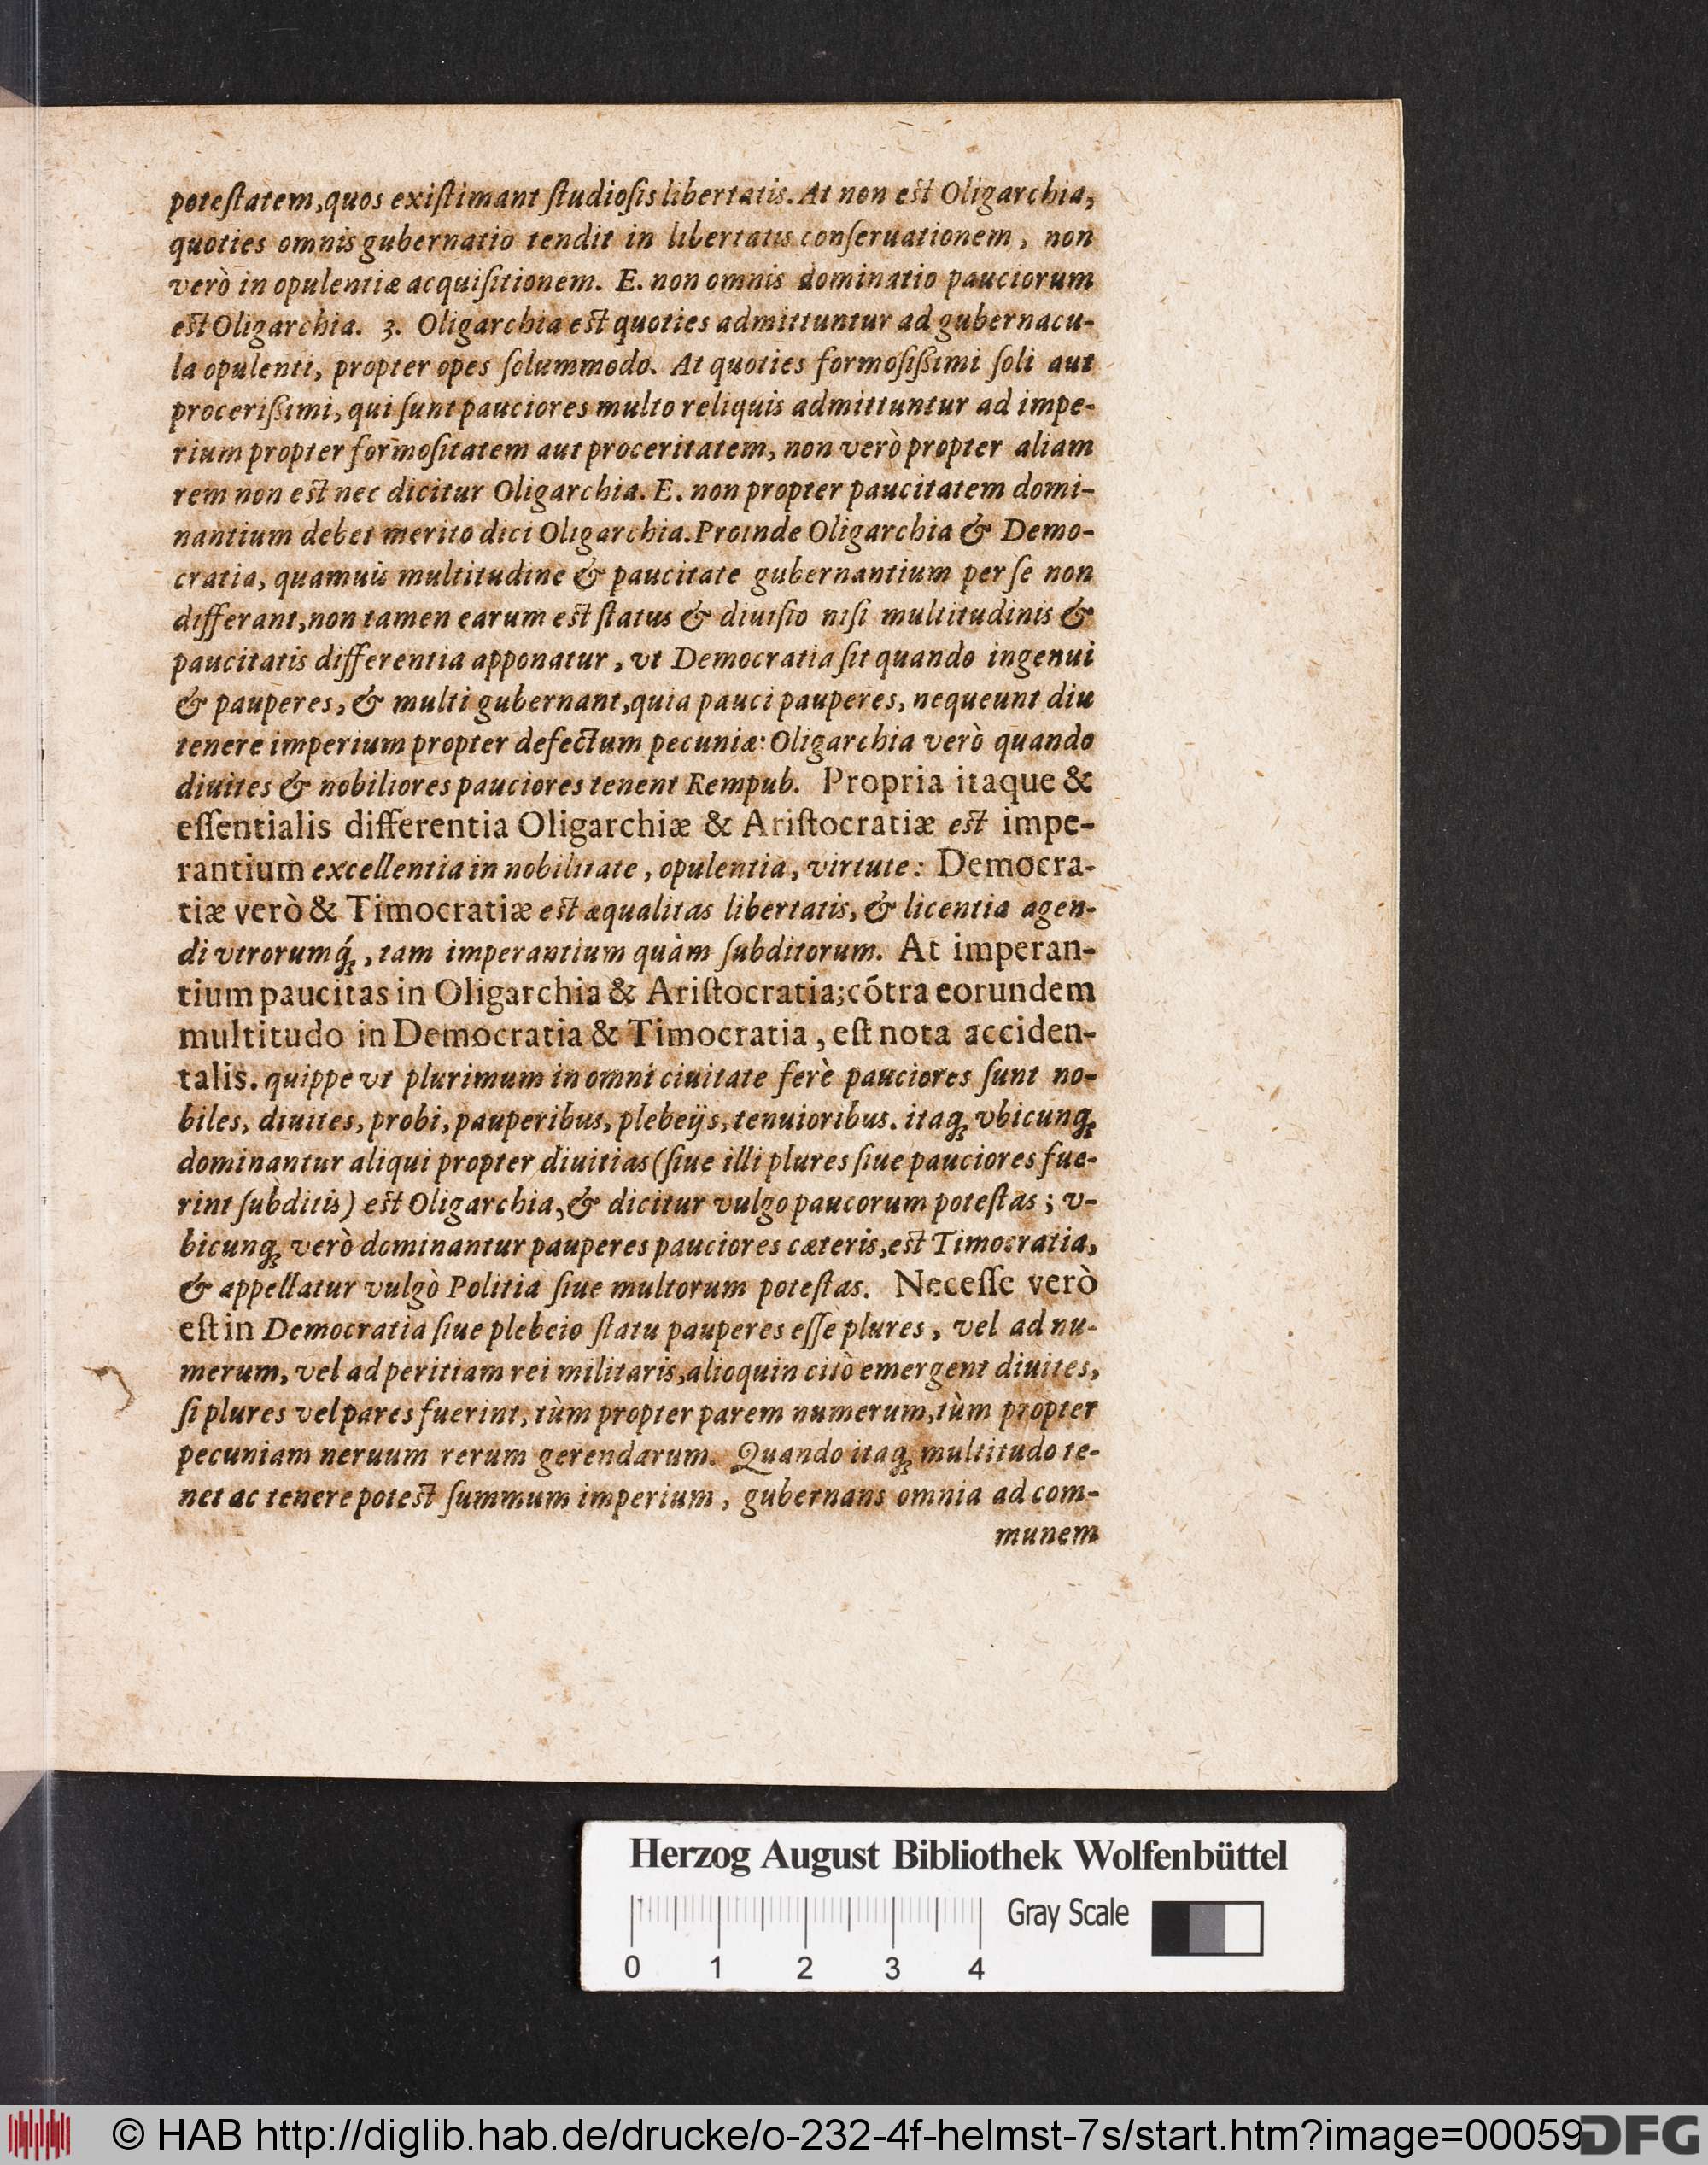 poteſtatem, quos exiſtimant ſtudioſis libertatis. At non eſt Oligarchia,
quoties omnis gubernatio tendit in libertatis conſeruationem, non
verò in opulentiæ acquiſitionem. E. non omnis dominatio pauciorum
eſt Oligarchia. 3. Oligarchia eſt quoties admittuntur ad gubernacu-
la opulenti, propter opes ſolummodo. At quoties formoſißimi ſoli aut
procerißimi, qui ſunt pauciores multo reliquis admittuntur ad impe-
rium propter formoſitatem aut proceritatem, non verò propter aliam
rem non eſt nec dicitur Oligarchia. E. non propter paucitatem domi-
nantium debet merito dici Oligarchia. Proinde Oligarchia & Demo-
cratia, quamuis multitudine & paucitate gubernantium per ſe non
differant, non tamen earum eſt ſtatus & diuiſio niſi multitudinis &
paucitatis differentia apponatur, vt Democratia ſit quando ingenui
& pauperes, & multi gubernant, quia pauci pauperes, nequeunt diu
tenere imperium propter defectum pecuniæ: Oligarchia verò quando
diuites & nobiliores pauciores tenent Rempub. Propria itaque &
eſſentialis differentia Oligarchiæ & Ariſtocratiæ eſt impe-
rantium excellentia in nobilitate, opulentia, virtute: Democra-
tiæ verò & Timocratiæ eſt æqualitas libertatis, & licentia agen-
di vtrorumq́ꝫ, tam imperantium quàm ſubditorum. At imperan-
tium paucitas in Oligarchia & Ariſtocratia; cõtra eorundem
multitudo in Democratia & Timocratia, eſt nota acciden-
talis. quippe vt plurimum in omni ciuitate ferè pauciores ſunt no-
biles, diuites, probi, pauperibus, plebeijs, tenuioribus. itaqꝫ vbicunqꝫ
dominantur aliqui propter diuitias (ſiue illi plures ſiue pauciores fue-
rint ſubditis) eſt Oligarchia, & dicitur vulgo paucorum poteſtas; v-
bicunqꝫ verò dominantur pauperes pauciores cæteris, eſt Timocratia,
& appellatur vulgò Politia ſiue multorum poteſtas. Neceſſe verò
eſt in Democratia ſiue plebeio ſtatu pauperes eſſe plures, vel ad nu-
merum, vel ad peritiam rei militaris, alioquin citò emergent diuites,
ſi plures vel pares fuerint, tùm propter parem numerum, tùm propter
pecuniam neruum rerum gerendarum. Quando itaqꝫ multitudo te-
net ac tenere poteſt ſummum imperium, gubernans omnia ad com-
munem
Herzog August Bibliothek Wolfenbüttel
Gray Scale
0 1 2 3 4
© HAB http://diglib.hab.de/drucke/o-232-4f-helmst-7s/start.htm?image=00059
DFG